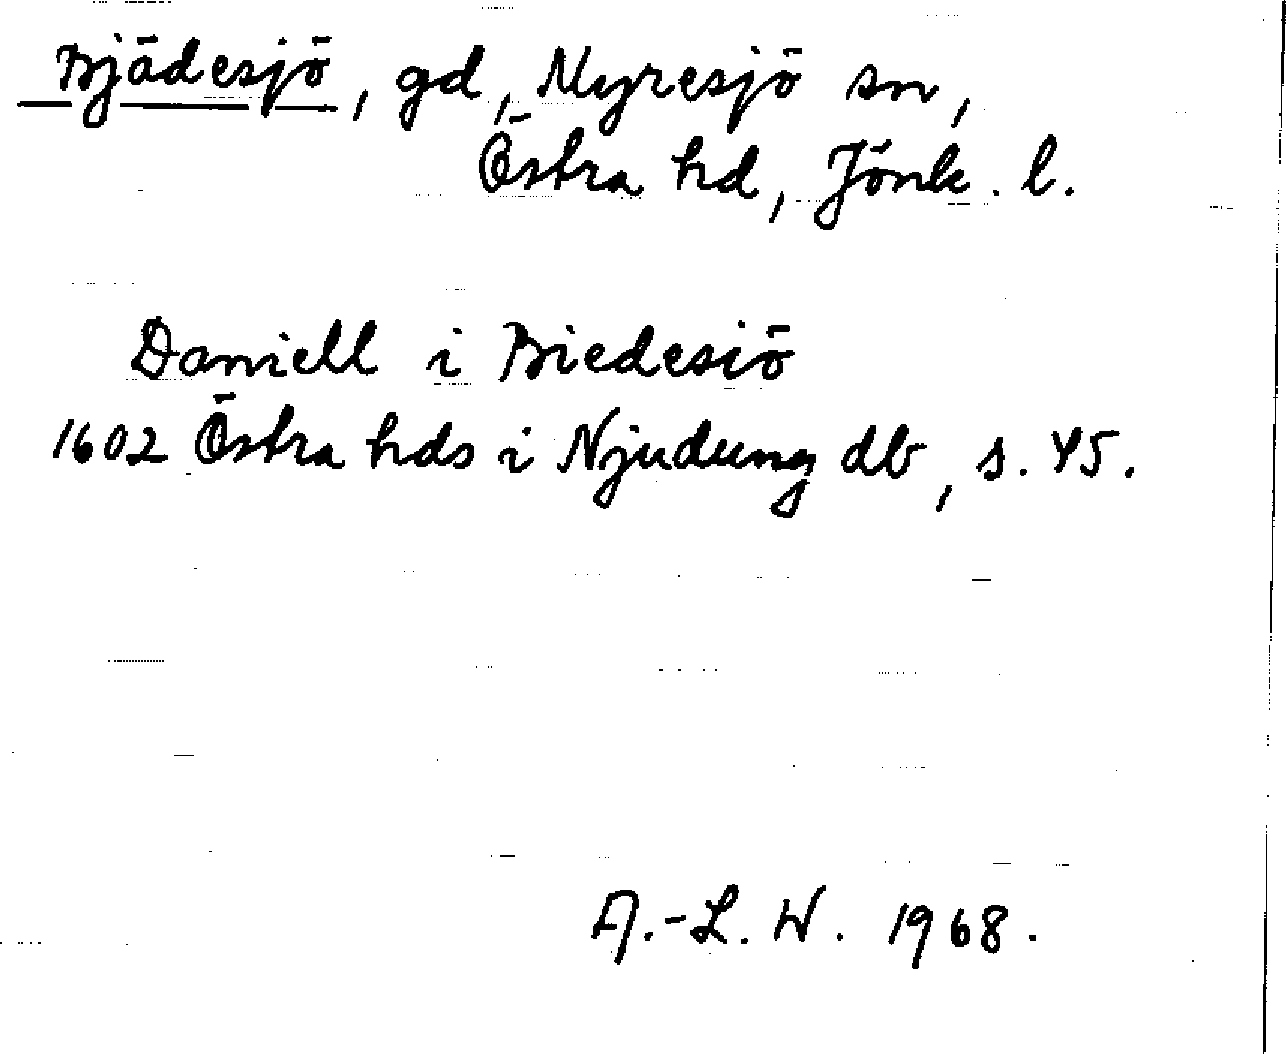 Bjädesjö, gd, Myresjö sn,
Östra hd, Jönk. l.
Daniell i Biedesiö
1602 Östra hds i Njudung db, s. 45.
A.-L. W. 1968.